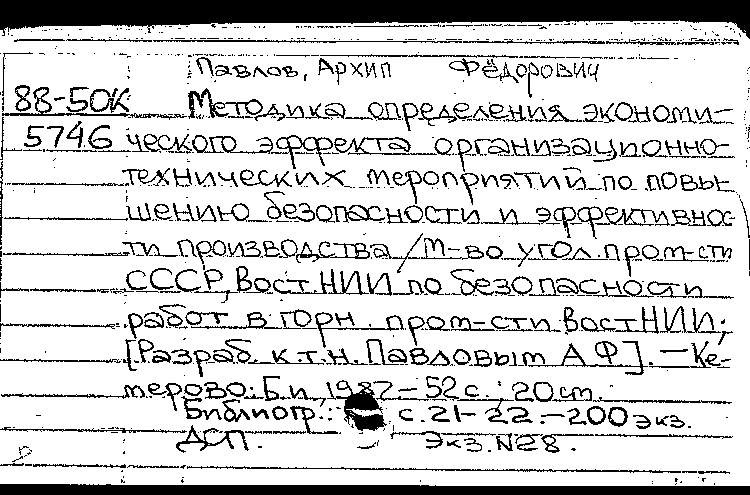 Павлов, Архип Фёдорович
88-50К Методика определения экономи-
5746 ческого эффекта организационно-
технических мероприятий по повы-
шению безопасности и эффективнос-
ти производства / М-во угол. пром-сти
СССР, Вост. НИИ по безопасности
работ в горн. пром-сти ВостНИИ;
[Разраб. к.т.н. Павловым А Ф]. — Ке-
мерово: Б.и., 1987 – 52 с.; 20 см.
Библиогр.: с. 21-22. – 200 экз.
ДСП. Экз. №28.